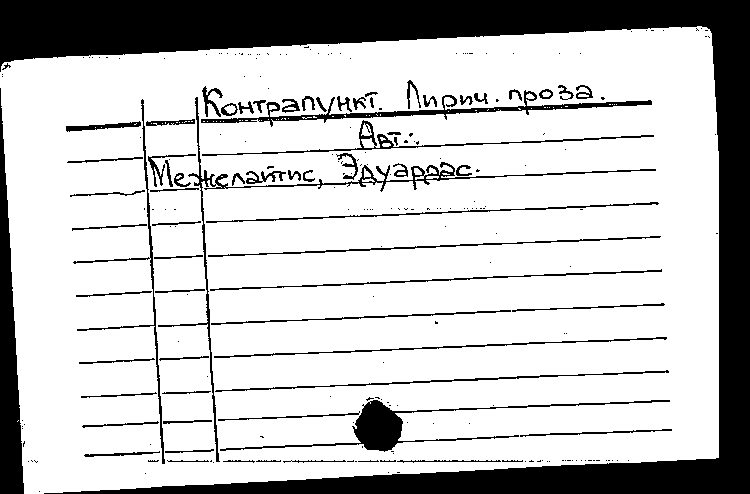 Контрапункт. Лирич. проза.
Авт.:
Межелайтис, Эдуардас.